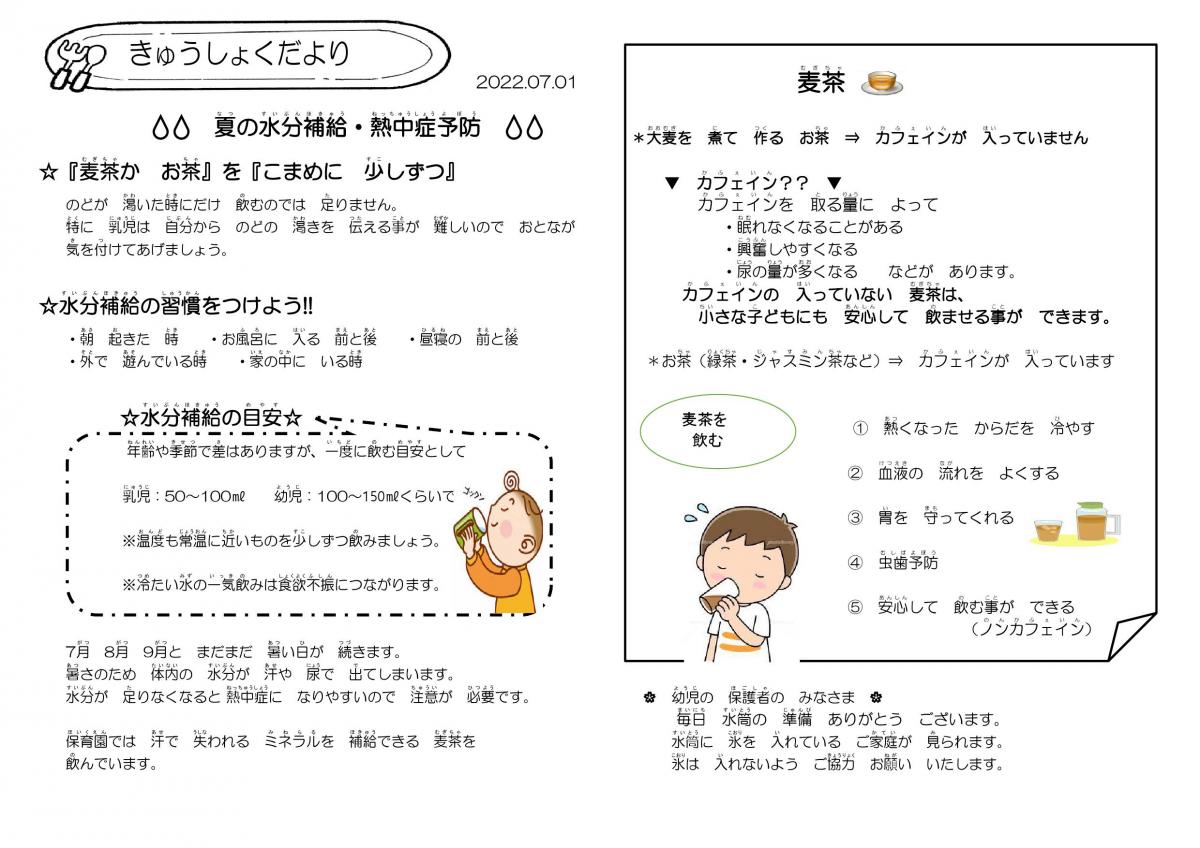 きゅうしょくだより
2022.07.01
夏の水分補給・熱中症予防
☆『麦茶か　お茶』を『こまめに　少しずつ』
のどが　渇いた時にだけ　飲むのでは　足りません。
特に　乳児は　自分から　のどの　渇きを　伝える事が　難しいので　おとなが
気を付けてあげましょう。
☆水分補給の習慣をつけよう!!
・朝　起きた　時　　・お風呂に　入る　前と後　　・昼寝の　前と後
・外で　遊んでいる時　　・家の中に　いる時
☆水分補給の目安☆
年齢や季節で差はありますが、一度に飲む目安として
乳児：50～100㎖　　幼児：100～150㎖くらいで
ゴックン
※温度も常温に近いものを少しずつ飲みましょう。
※冷たい水の一気飲みは食欲不振につながります。
7月　8月　9月と　まだまだ　暑い日が　続きます。
暑さのため　体内の　水分が　汗や　尿で　出てしまいます。
水分が　足りなくなると　熱中症に　なりやすいので　注意が　必要です。
保育園では　汗で　失われる　ミネラルを　補給できる　麦茶を
飲んでいます。
麦茶
＊大麦を　煮て　作る　お茶　⇒　カフェインが　入っていません
▼　カフェイン？？　▼
カフェインを　取る量に　よって
・眠れなくなることがある
・興奮しやすくなる
・尿の量が多くなる　　などが　あります。
カフェインの　入っていない　麦茶は、
小さな子どもにも　安心して　飲ませる事が　できます。
＊お茶（緑茶・ジャスミン茶など）⇒　カフェインが　入っています
麦茶を
飲む
①　熱くなった　からだを　冷やす
②　血液の　流れを　よくする
③　胃を　守ってくれる
④　虫歯予防
⑤　安心して　飲む事が　できる
（ノンカフェイン）
✿　幼児の　保護者の　みなさま　✿
毎日　水筒の　準備　ありがとう　ございます。
水筒に　氷を　入れている　ご家庭が　見られます。
氷は　入れないよう　ご協力　お願い　いたします。